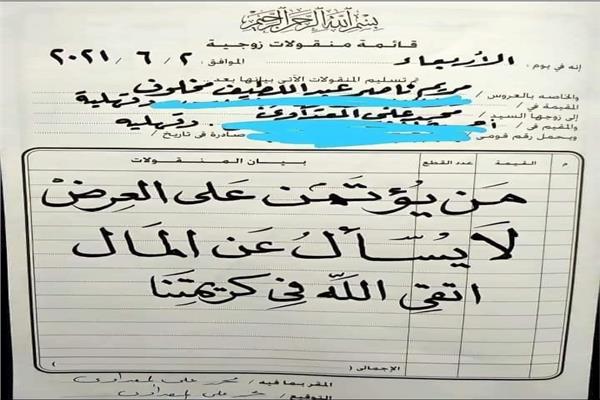 بسم الله الرحمن الرحيم
قائمة منقولات زوجية
إنه في يوم : الأربعاء الموافق : ٢ / ٦ / ٢٠٢١
تم تسليم المنقولات الآتى بيانها بعد
والخاصه بالعروس / مريم ناصر عبد اللطيف مخلوف
المقيمة في / دقهلية
إلى زوجها السيد / محمد علي
والمقيم في / دقهليه
ويحمل رقم قومى / صادرة فى تاريخ /
م القيمة عدد القطع بيان المنقولات
مَن يُؤتمَن على العِرض
لَا يُسأَلُ عَن المَال
اتقِ اللّه فِي كَرِيمَتِنَا
الإجمالى / ( )
المقر بما فيه / محمد على
التوقيع / محمد على